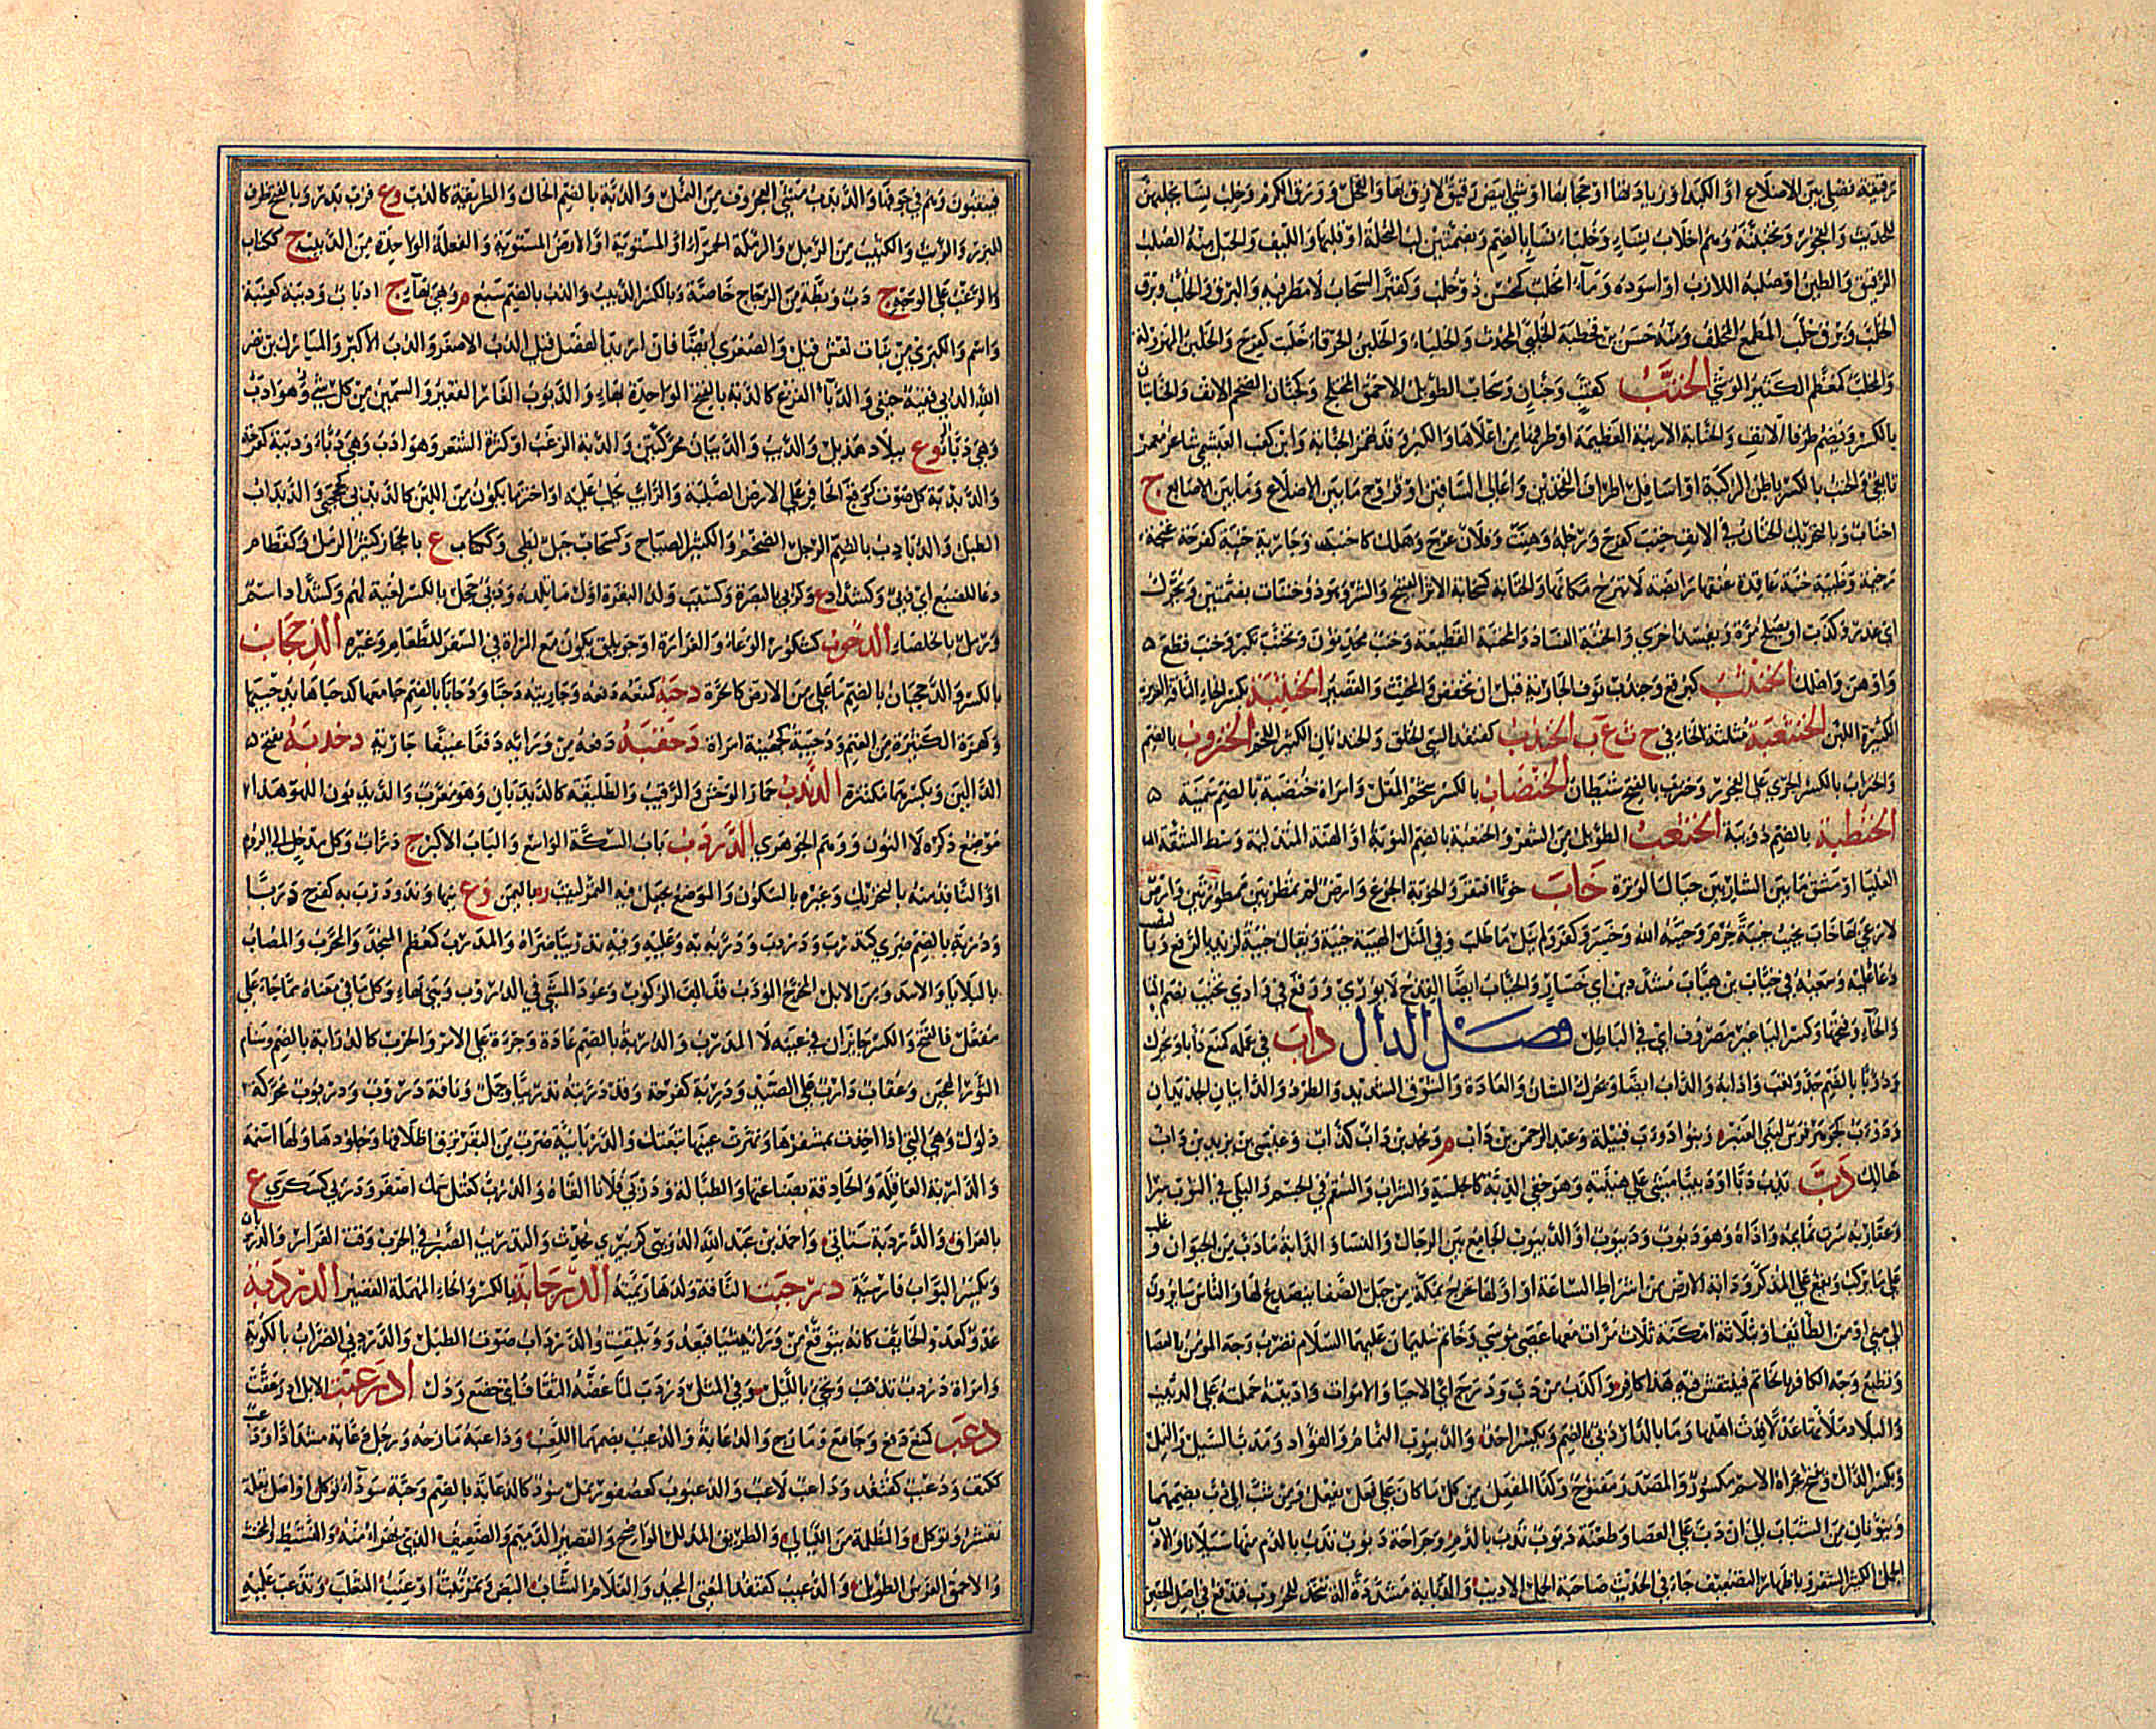 رقيقة تصل بين الاضلاع او الكبد او زيادتها او حجابها او شئ ابيض رقيق لازق بها والفجل وورق الكرم وخلب نساء يحبهن
للحديث والفجور ويحببنه وهم اخلاب نساء وخلباء نساء بالضم وبضمتين لب النخلة او قلبها والليف والحبل منه الصلب
الرقيق والطين او صلبه اللازب او اسوده وماء مخلب كمحسن ذو خلب وكقبر السحاب لا مطر فيه والبرق الخلب وبرق
الخلب وبرق خلب المطمع المخلف ومنه حسن بن قحطبة الخلبي المحدث والخلباء والخلبن الخرقاء خلبت كفرح والخلبن المهزولة
والمخلب كمعظم الكثير الوشي الخنب كقنب وجنان وسحاب الطويل الاحمق المختلج وكجنان الضخم الانف والخنابتان
بالكسر ويضم طرفا الانف والخنابة الارنبة العظيمة او طرفها من اعلاها والكبر وقد تهمز الخنابة وابن كعب العبشمي شاعر معمر
تابعي والخنب بالكسر باطن الركبة او اسافل اطراف الفخذين واعالي الساقين او فروج ما بين الاضلاع وما بين الاصابع ج
اخناب وبالتحريك الخنان في الانف خنب كفرح ورجله وهنت وفلان عرج وهلك كاخنب وجارية خنبة كفرحة غنجة
رخيمة وظبية خنبة عاقدة عنقها رابضة لا تبرح مكانها والخنابة كسحابة الاثر القبيح والشر وهو ذو خنبات بضمتين ويحرك
اي غدر وكذب او يصلح مرة ويفسد اخرى والخنبة الفساد والمخنبة القطيعة وخنب محدثون وتخنب تكبر وخنب قطع
واوهن واهلك الخنتب كبرقع وجندب نوف الجارية قبل ان تخفض والمخنث والقصير الخنثبة بكسر الخاء الناقة الغزيرة
الكثيرة اللبن الخنثعبة مثلثة الخاء في خ ث ع ب الخندب كقنفذ السيئ الخلق والخندبان الكثير اللحم الخنزوب بالضم
والخنزاب بالكسر الجري على الفجور وخنزب بالفتح شيطان الخنضاب بالكسر شحم المقل وامراة خنضبة بالضم سمينة
الخنظبة بالضم دويبة الخنعب الطويل من الشعر والخنعبة بالضم النونة او الهنة المتدلية وسط الشفة
العليا او مشق ما بين الشاربين حيال الوترة خاب خوبا افتقر والخوبة الجوع وارض لم تمطر بين ممطورتين وارض
لا رعي بها خاب يخيب خيبة حرم وخيبه الله وخسر وكفر ولم ينل ما طلب وفي المثل الهيبة خيبة ويقال خيبة لزيد بالرفع وبالنصب
دعا عليه وسعيه في خياب بن هياب مشددين اي خسار والخياب ايضا القدح لا يوري ووقع في وادي تخيب بضم التاء
والخاء وفتحها وكسر الياء غير مصروف اي في الباطل فصل الدال داب في عمله كمنع دأبا ويحرك
ودؤوبا بالضم جد وتعب وادابه والداب ايضا ويحرك الشان والعادة والسوق الشديد والطرد والدائبان الجديدان
ودؤب كجوهر فرس لبني العنبر وبنو دؤب قبيلة وعبد الرحمن بن داب م ومحمد بن داب كذاب وعيسى بن يزيد بن داب
هالك دب يدب دبا ودبيبا مشى على هينته وهو خفي الدبة كالجلسة والشراب والسقم في الجسم والبلى في الثوب سرى
وعقاربه سرت نمائمه واذاه وهو دبوب وديبوب او الديبوب الجامع بين الرجال والنساء والدابة ما دب من الحيوان وغلب
على ما يركب ويقع على المذكر ودابة الارض من اشراط الساعة او اولها تخرج بمكة من جبل الصفا ينصدع لها والناس سائرون
الى منى او من الطائف او بثلاثة امكنة ثلاث مرات معها عصى موسى وخاتم سليمان عليهما السلام تضرب وجه المؤمن بالعصا
وتطبع وجه الكافر بالخاتم فينتقش فيه هذا كافر واكذب من دب ودرج اي الاحياء والاموات وادببته حملته على الدبيب
والبلاد ملاتها عدلا فدب اهلها وما بالدار دبي بالضم ويكسر احد والديبوب النمام والقواد ومدب السيل والنمل
وبكسر الدال وفتح مجراه الاسم مكسور والمصدر مفتوح وكذا المفعل من كل ما كان على فعل يفعل ومن شب الى دب بضمهما
وينونان من الشباب الى ان دب على العصا وطعنة دبوب تدب بالدم وجراحة دبوب يدب الدم منها سيلانا والادب
الجمل الكثير الشعر وباظهار التضعيف جاء في الحديث صاحبة الجمل الادبب والدبابة مشددة آلة تتخذ للحروب فتدفع في اصل الحصن
فينقبون وهم في جوفها والدبدب مشي العجروف من النمل والدبة بالضم الحال والطريقة كالدب وع قرب بدر وبالفتح ظرف
للبزر والزيت والكثيب من الرمل والرملة الحمراء او المستوية او الارض المستوية والفعلة الواحدة من الدبيب ج ككتاب
والزغب على الوجه ج دب وبطة من الزجاج خاصة وبالكسر الدبيب والدب بالضم سبع م وهي بهاء ج ادباب ودببة كعنبة
واسم والكبرى من بنات نعش قيل والصغرى ايضا فان اريد الفصل قيل الدب الاصغر والدب الاكبر والمبارك بن نصر
الله الدبي فقيه حنفي والدباء القرع كالدبة بالفتح الواحدة بهاء والدبوب الغار القعير والسمين من كل شئ وهو ادب
وهي دباء وع ببلاد هذيل والدبب والدببان محركتين والدبة الزغب او كثرة الشعر وهو ادب وهي دباء ودببة كفرحة
والدبدبة كل صوت كوقع الحافر على الارض الصلبة والرائب يحلب عليه او اخثر ما يكون من اللبن كالدبدبى كحجحبى والدبداب
الطبل والدبادب بالضم الرجل الضخم والكثير الصياح وكسحاب جبل لطي وككتاب ع بالحجاز كثير الرمل وكقطام
دعاء للضبع اي دبي وكشداد ع وكربى بالبصرة وكسبب ولد البقرة اول ما تلده ودبى حجل بالكسر لعبة لهم وكشداد اسم
ورمل بالخلصاء الدجوب كشكور الوعاء والغرارة او جويلق يكون مع المراة في السفر للطعام وغيره الدجحاب
بالكسر والدحجبان بالضم ما علا من الارض كالحرة دحبه كمنعه دفعه وجاريته دحبا ودحابا بالضم جامعها كدحباها يدحبيها
وكهمزة الكثيرة من الغنم ودحيبة كجهينة امراة دحقبه دفعه من ورائه دفعا عنيفا جارية دخدبة بفتح
الدالين وبكسرهما مكتنزة الديدب حمار الوحش والرقيب والطليعة كالديدبان وهو معرب والديدبون اللهو هذا
موضع ذكره لا النون ووهم الجوهري الدرب باب السكة الواسع والباب الاكبر ج دراب وكل مدخل الى الروم
او النافذ منه بالتحريك وغيره بالسكون والموضع يجعل فيه التمر ليقب وة باليمن وع بنهاوند ودرب به كفرح دربا
ودربة بالضم ضري كتدرب ودردب ودربه به وعليه وفيه تدريبا ضراه والمدرب كمعظم المنجذ والمجرب والمصاب
بالبلايا والاسد ومن الابل المخرج المؤدب قد الف الركوب وعود المشي في الدروب وهي بهاء وكل ما في معناه مما جاء على
مفعل فالفتح والكسر جائزان في عينه الا المدرب والدربة بالضم عادة وجرءة على الامر والحرب كالدرابة بالضم وسنام
الثور الهجين وعقاب دارب على الصيد ودربة كفرحة وقد دربته تدريبا وجمل وناقة دروب ودربوت محركة
ذلول وهي التي اذا اخذت بمشفرها ونهزت عينها تبعتك والدربانية ضرب من البقر ترق اظلافها وجلودها ولها اسنمة
والدرابة العاقلة والحاذقة بصناعتها والطبالة ودربى فلانا القاه والدرب كعتل سمك اصفر ودربى كسكرى ع
بالعراق والدربية ستاتي واحمد بن عبد الله الدربي كزبيري محدث والتدريب الصبر في الحرب وقت الفرار والدربان
ويكسر البواب فارسية درحبت الناقة ولدها رئمته الدرحابة بالكسر والحاء المهملة القصير الدردبة
عدو كعدو الخائف كانه يتوقع من ورائه شيئا فيعدو ويلتفت والدرداب صوت الطبل والدردبي الضراب بالكوبة
وامراة دردب تذهب وتجئ بالليل وفي المثل دردب لما عضه الثقاف اي خضع وذل ادرعبت الابل ادرعفت
دعب كمنع دفع وجامع ومازح والدعابة والدعبب بضمهما اللعب وداعبه مازحه ورجل دعابة مشددا ودعب
ككتف ودعبب كقنفذ وداعب لاعب والدعبوب كعصفور نمل سود كالدعابة بالضم وحبة سوداء تؤكل او اصل بقلة
تقشر وتؤكل والمظلمة من الليالي والطريق المذلل الواضح والقصير الدميم والضعيف الذي يهزأ منه والنشيط والمخنث
والاحمق الفرس الطويل والدعبب كقنفذ المغني المجيد والغلام الشاب البض وثمر نبت او عنب الثعلب وتدعب عليه